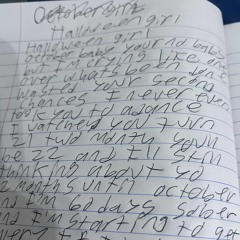 October
Halloween girl
Halloween girl
october baby your no baby
but I'm crying like one
over whats been done
wasted your second
chances I never even
took you to adance
I watched you turn
21 two months youll
be 22 and I'll still
thinking about yo
2 months until october
nd I'm 60 days sober
nd I'm starting to get
very